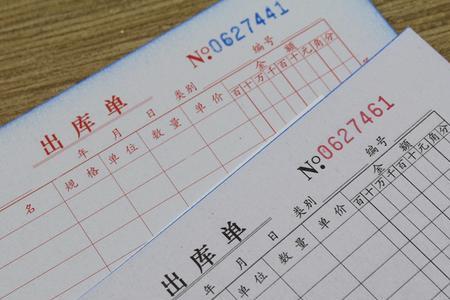 No.0627441
出库单
年 月 日 类别 编号
名 规格 单位 数量 单价 金额
百十万千百十元角分
No.0627461
出库单
年 月 日 类别 编号
单位 数量 单价 金额
百十万千百十元角分